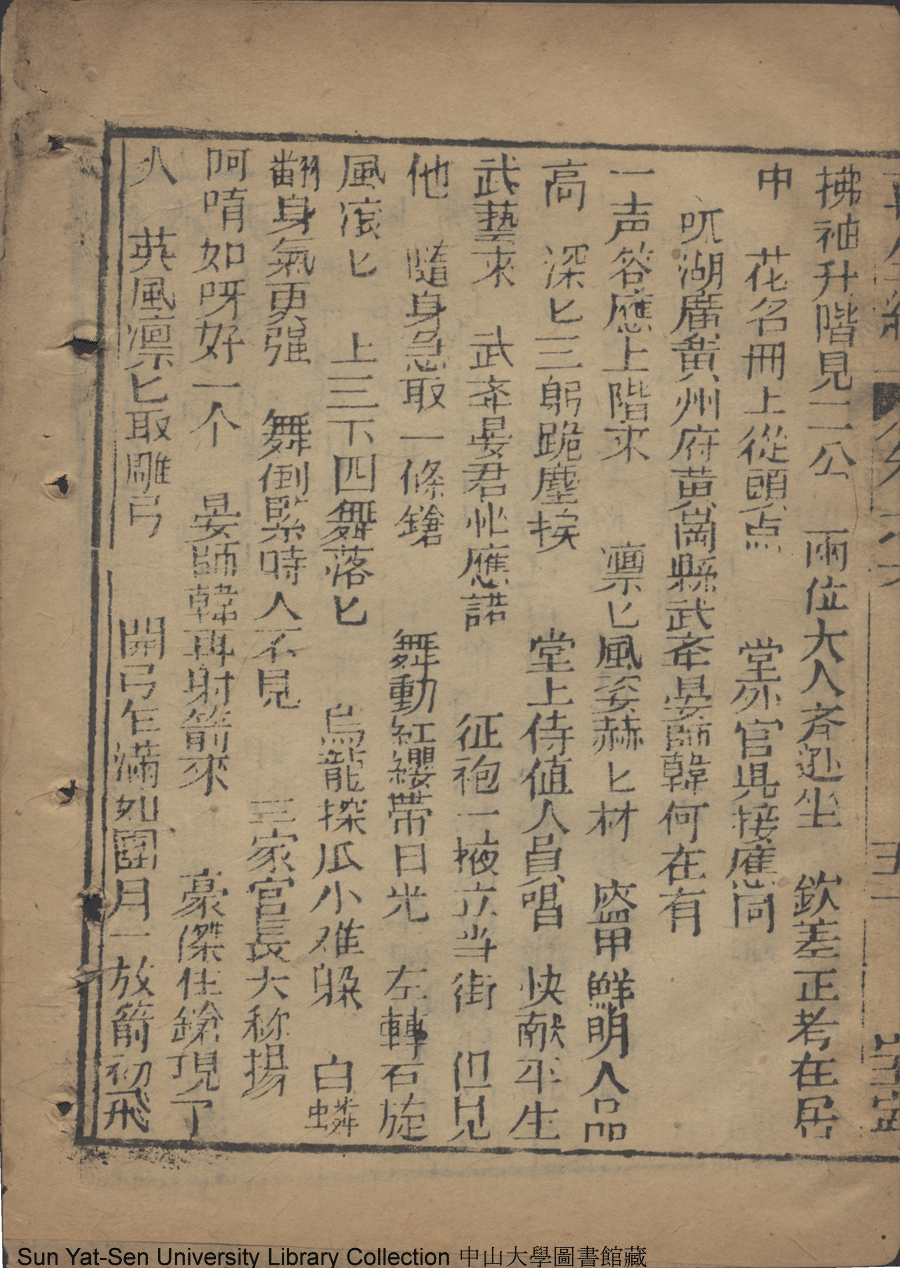 拂袖升階見二公　兩位大人齐进坐　欽差正考在居
中　花名冊上從頭点　堂外官員接應尚
吼湖廣黃州府黃崗縣武夲晏師韓何在有
一声答應上階來　凛匕風姿赫匕材　盔甲鮮明人品
高　深匕三躬跪塵挨　堂上侍值人員唱　快献平生
武藝來　武夲晏君忙應諾　征袍一掖立当街　但見
他　隨身急取一條鎗　舞動紅纓帶日光　左轉右旋
風滾匕　上三下四舞落匕　烏龍探瓜小难躱　白蟒
翻身氣更强　舞倒緊時人不見　三家官長大称揚
呵唷如呀好一个　晏師韓再射箭來　豪傑住鎗現了
八　英風凛匕取雕弓　開弓乍滿如圓月一放箭初飛
Sun Yat-Sen University Library Collection 中山大學圖書館藏